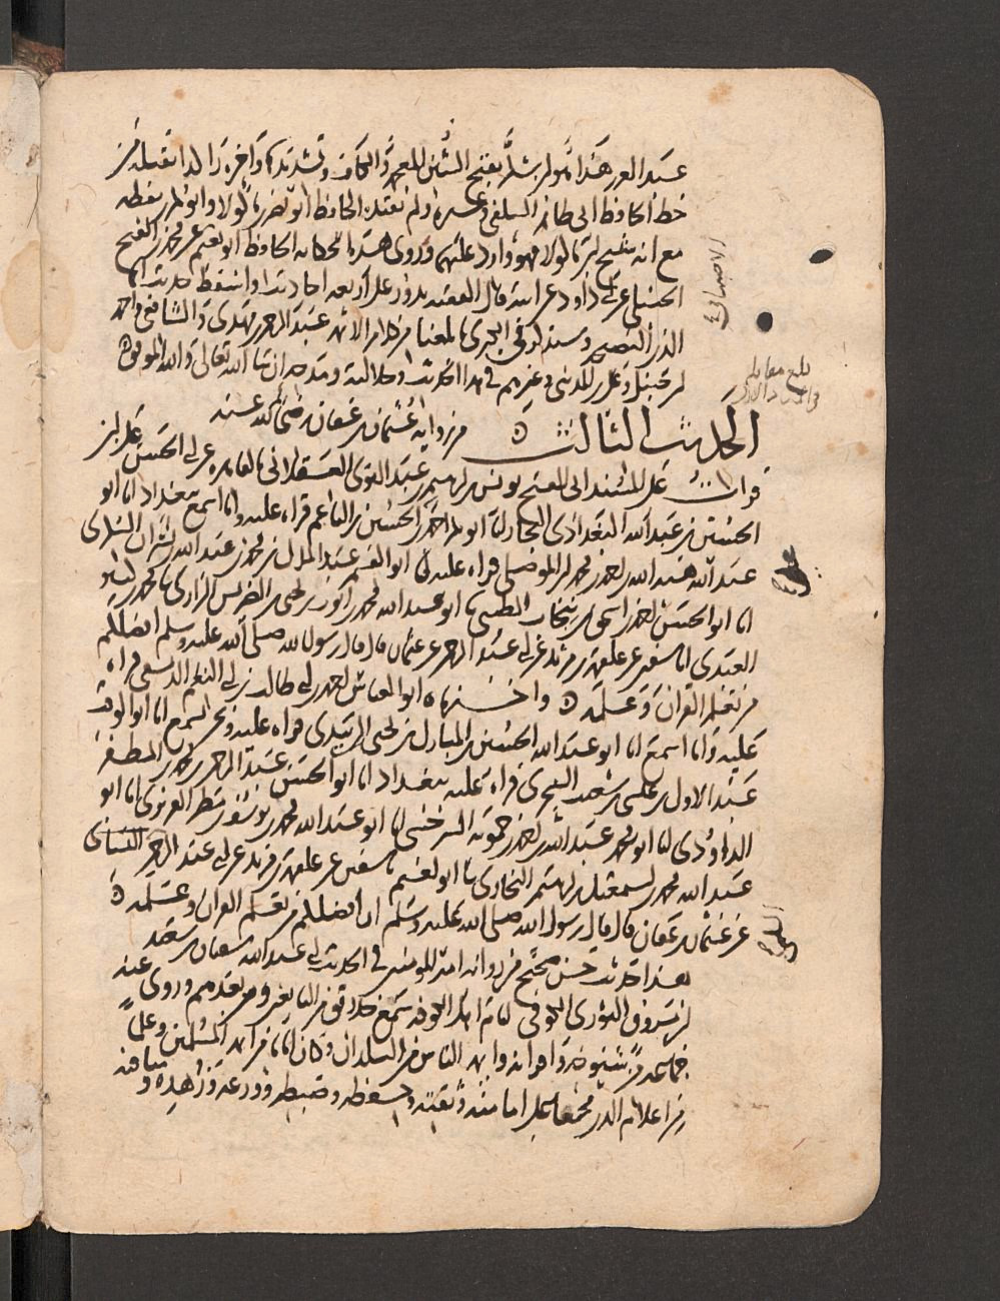 عبد العزيز هذا هو ابن شكر بفتح الشين المعجمة والكاف وتشديدها وآخره را
خط الحافظ ابي طاهر السلفي وغيره ولم يعتد الحافظ ابو نصر بن ماكولا
مع انه شيخ ابن ماكولا فهو وارد عليهم وروى هذه الحكاية الحافظ ابو نعيم عن محمد بن الفتح
الحنبلي عن ابن ابي داود عن ابيه قال الفقه يدور على اربعة احاديث
الدين النصيحة وسنذكر في بالمعنا من كلام الائمة عبد الرحمن بن مهدي والشافعي واحمد
بن حنبل وعلي بن المديني وغيرهم في هذا الحديث وجلالته ان شا الله تعالى والله الموفق
الحديث الثالث من رواية عثمان بن عفان رضي الله عنه
قرات على المسند ابي الفتح يونس بن ابرهيم بن عبد القوي العسقلاني بالقاهرة عن ابي الحسن علي بن
الحسين بن عبد الله البغدادي النجار انا ابو قراة عليه وانا اسمع ببغداد انا ابو
عبد الله بن احمد بن محمد الموصلي قراة عليه انا ابو القسم عبد الملك بن محمد بن عبد الله بن بشران
انا ابو الحسن احمد بن اسحق بن نيخاب الطيبي نا ابو عبد الله محمد بن ايوب بن يحيى بن الضريس الرازي نا محمد بن كثير
العبدي انا سفين عن علقمة بن مرثد عن ابي عبد الرحمن عن عثمان قال قال رسول الله صلى الله عليه وسلم افضلكم
من تعلم القران وعلمه واخبرناه ابو العباس احمد بن ابي طالب بن ابي النعم الدمشقي قراه
عليه وانا اسمع انا ابو عبد الله الحسين بن المبارك بن يحيى الزبيدي قراه عليه ونحن نسمع انا ابو الوقت
عبد الاول بن عيسى بن شعيب السجزي قراه عليه ببغداد انا ابو الحسن عبد الرحمن بن محمد بن المظفر
الداوودي انا ابو محمد عبد الله بن احمد بن حمويه السرخسي انا ابو عبد الله محمد بن يوسف بن مطر الفربري انا ابو
عبد الله محمد بن اسمعيل بن ابرهيم البخاري نا ابو نعيم نا سفين عن علقمة بن مرثد عن ابي عبد الرحمن السلمي
عن عثمن بن عفان قال قال رسول الله صلى الله عليه وسلم ان افضلكم من تعلم القران وعلمه
هذا حديث حسن صحيح من رواية امير المومنين في الحديث ابي عبد الله سفيان بن سعيد
بن مسروق الثوري الكوفي امام اهل الكوفة سمع خلائق من التابعين ومن بعدهم وروى عنه
جماعة من شيوخه واقرانه الناس من البلدان وكان اماما من ايمة المسلمين وعلما
من اعلام الدين مجمعا على امامته وثقته وحفظه وضبطه وورعه وزهده
الاصبهاني
بلغ مقابلة